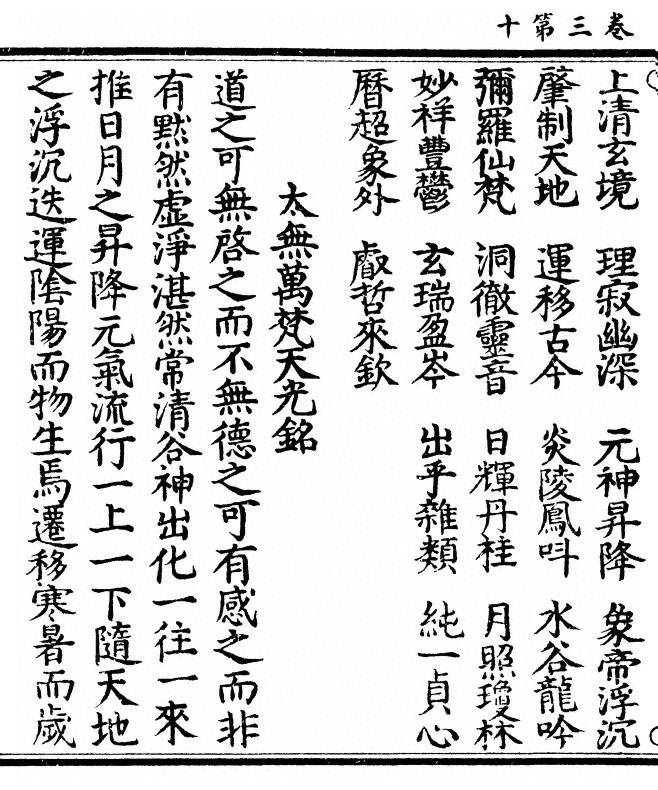 卷三第十
上清玄境　理寂幽深　元神昇降　象帝浮沉
肇制天地　運移古今　炎陵鳳呌　水谷龍吟
彌羅仙梵　洞徹靈音　日輝丹桂　月照瓊林
妙祥豐鬱　玄瑞盈岑　出乎雜類　純一貞心
曆超象外　叡哲來欽
太無萬梵天光銘
道之可無啓之而不無德之可有感之而非
有默然虛淨湛然常清谷神出化一往一來
推日月之昇降元氣流行一上一下隨天地
之浮沉迭運陰陽而物生焉遷移寒暑而歲